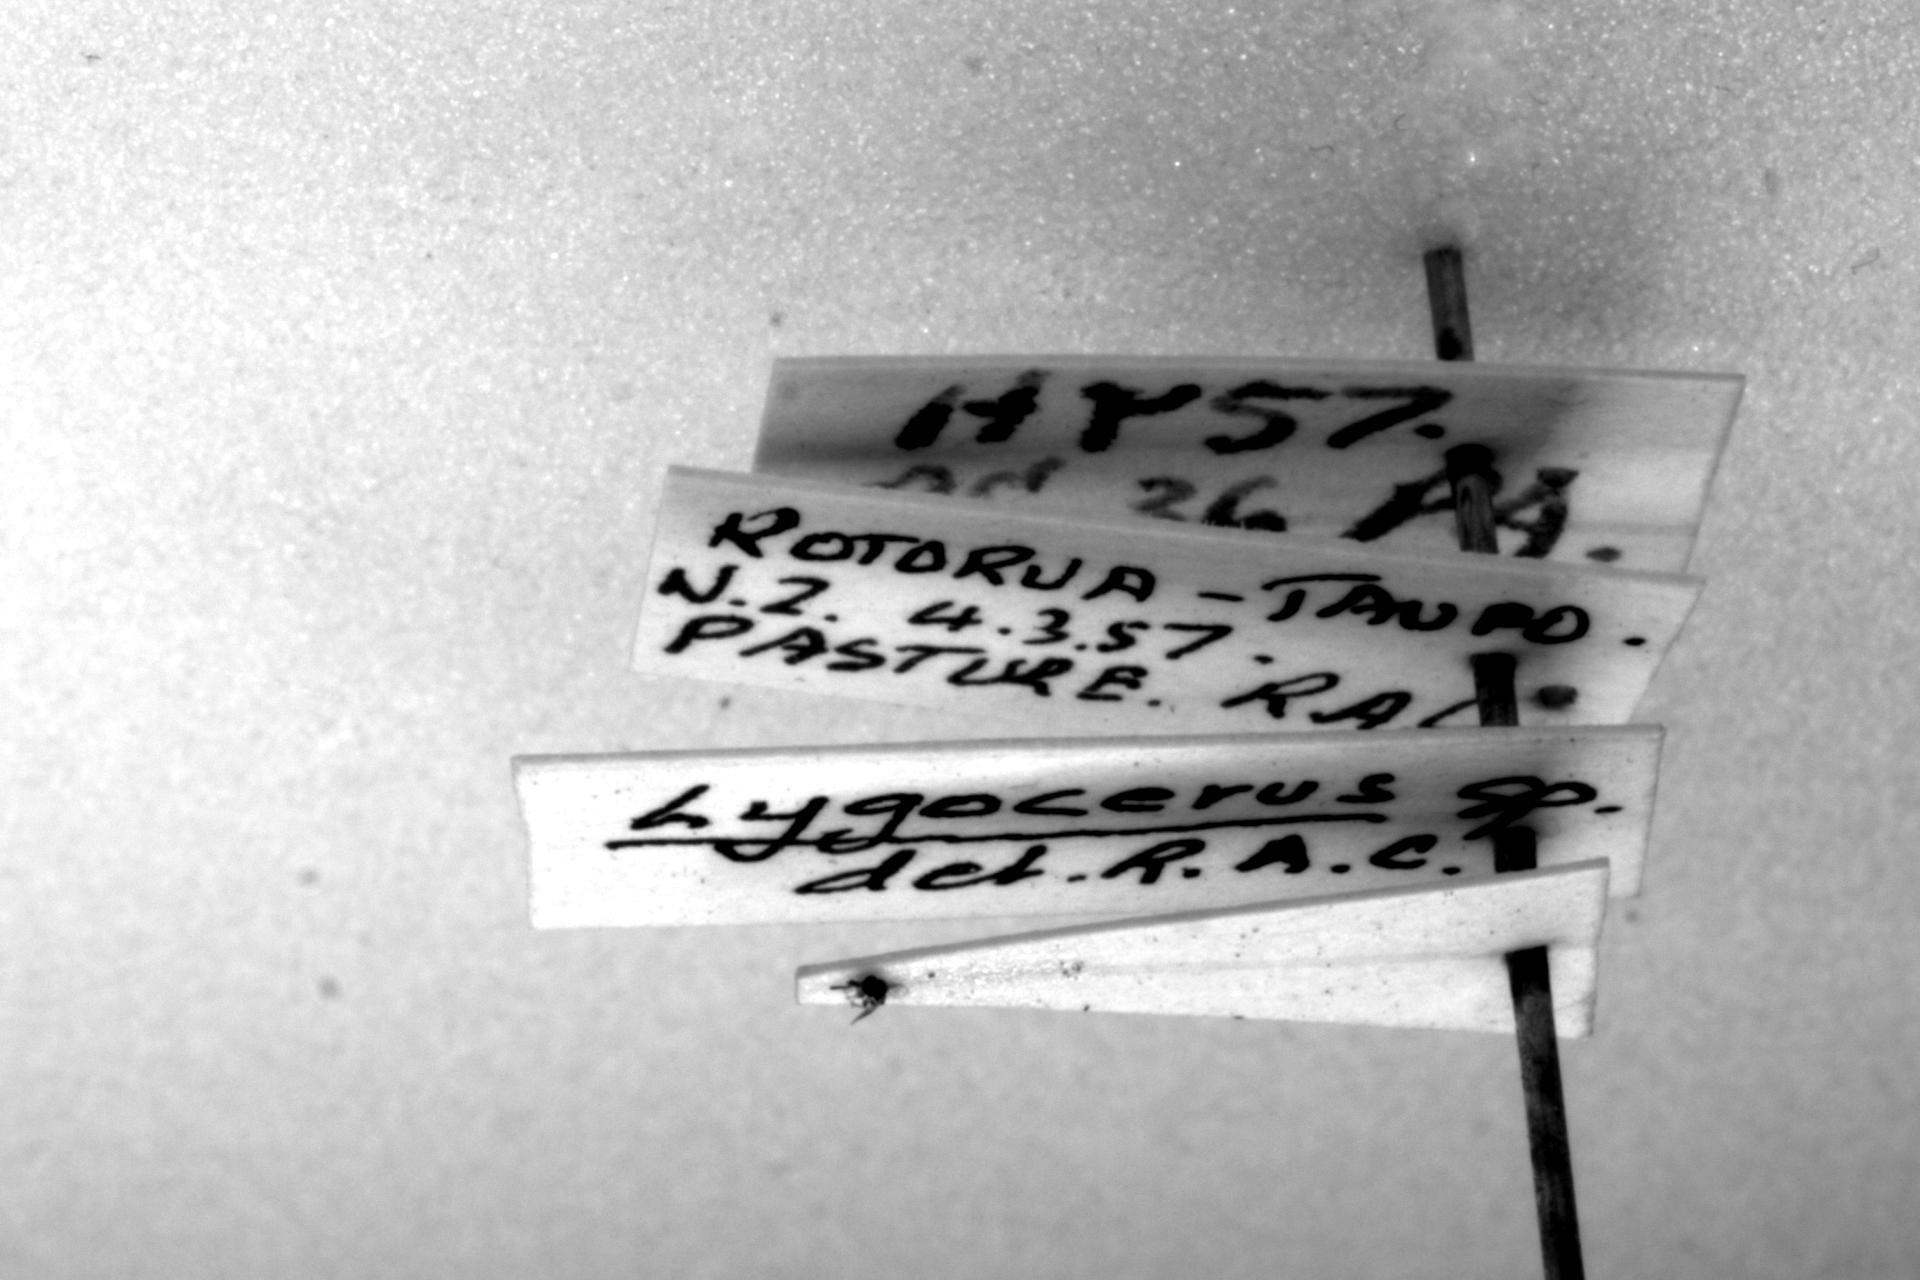 HY57.
26 AA.
ROTORUA - TAUPO.
N.Z. 4.3.57.
PASTURE. R.A.C
Lygocerus sp.
det. R.A.C.